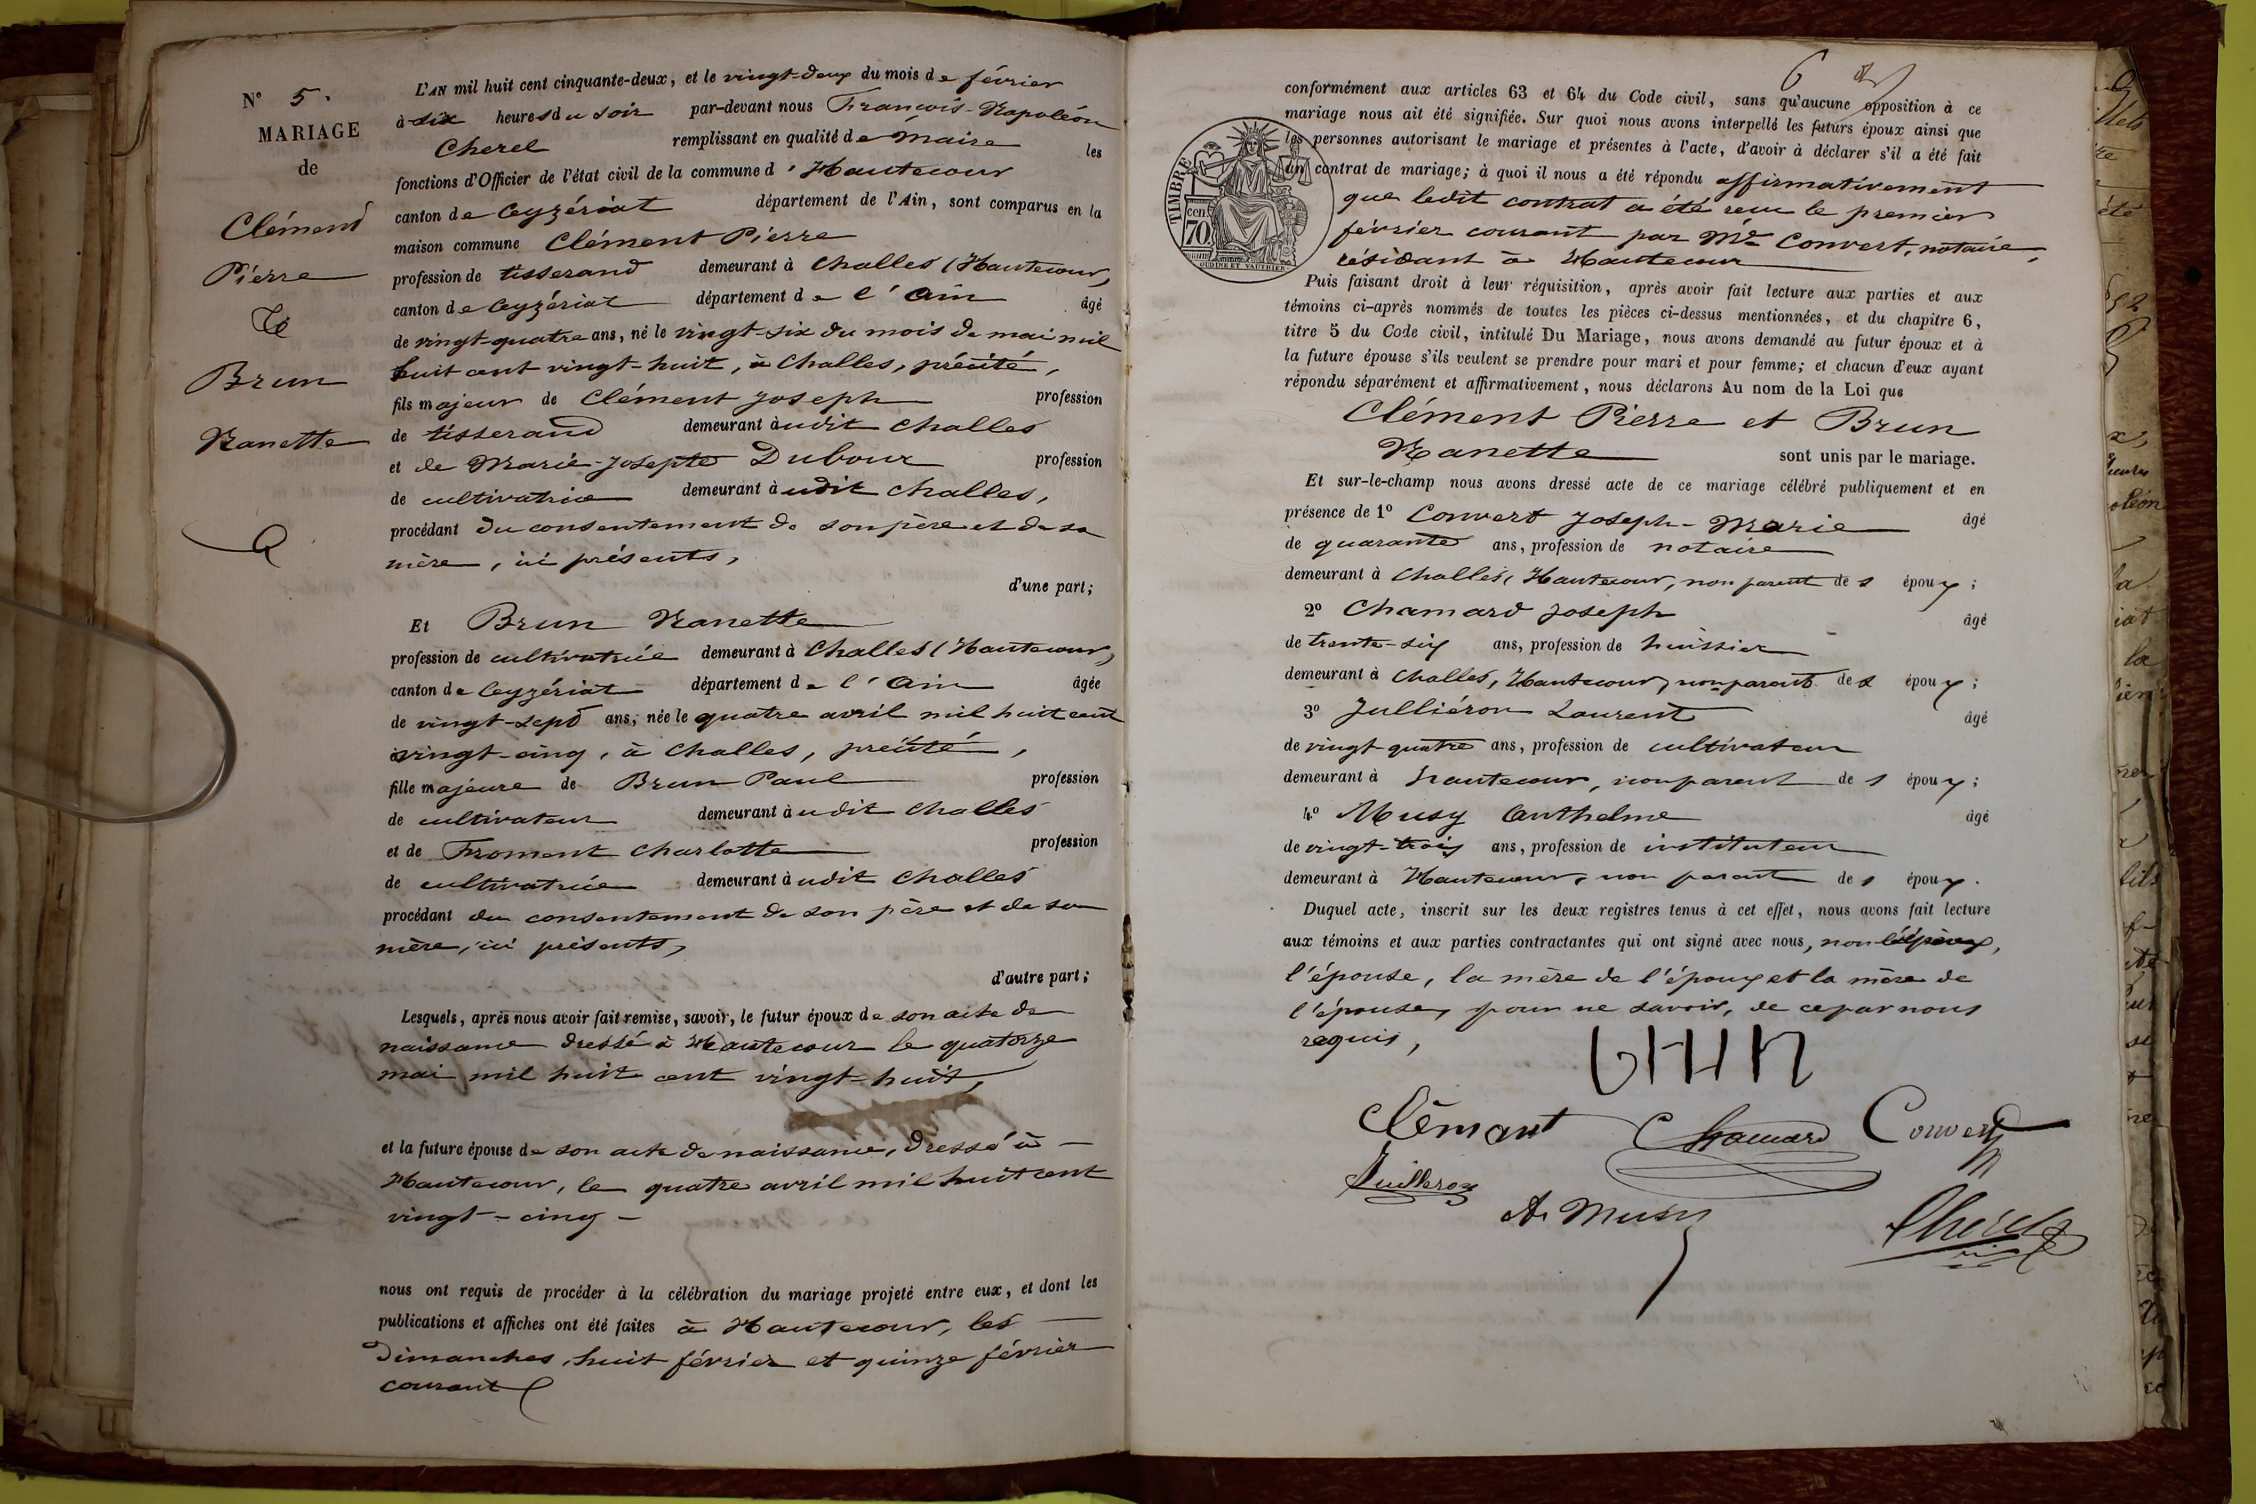 N° 5.
MARIAGE
de
Clément
Pierre
&
Brun
Nanette
L'AN mil huit cent cinquante-deux, et le vingt-deux du mois de février
à six heures du soir par-devant nous François-Napoléon
Cherel remplissant en qualité de Maire les
fonctions d'Officier de l'état civil de la commune d'Hautecour
canton de Ceyzériat département de l'Ain, sont comparus en la
maison commune Clément Pierre
profession de tisserand demeurant à Challes (Hautecour)
canton de Ceyzériat département de l'Ain âgé
de vingt-quatre ans, né le vingt-six du mois de mai mil
huit cent vingt-huit, à Challes, précité,
fils majeur de Clément Joseph profession
de tisserand demeurant à udit Challes
et de Marie-Josephte Dubour profession
de cultivatrice demeurant à udit Challes,
procédant du consentement de son père et de sa
mère, ici présents,
d'une part;
Et Brun Nanette
profession de cultivatrice demeurant à Challes (Hautecour)
canton de Ceyzériat département de l'Ain âgée
de vingt-sept ans, née le quatre avril mil huit cent
vingt-cinq, à Challes, précité,
fille majeure de Brun Paul profession
de cultivateur demeurant à udit Challes
et de Froment Charlotte profession
de cultivatrice demeurant à udit Challes
procédant du consentement de son père et de sa
mère, ici présents,
d'autre part;
Lesquels, après nous avoir fait remise, savoir, le futur époux de son acte de
naissance dressé à Hautecour le quatorze
mai mil huit cent vingt-huit,
et la future épouse de son acte de naissance, dressé à
Hautecour, le quatre avril mil huit cent
vingt-cinq
nous ont requis de procéder à la célébration du mariage projeté entre eux, et dont les
publications et affiches ont été faites à Hautecour, les
Dimanches, huit février et quinze février
courant
6
TIMBRE
70 cen
OUDINE ET VAUTHIER
conformément aux articles 63 et 64 du Code civil, sans qu'aucune opposition à ce
mariage nous ait été signifiée. Sur quoi nous avons interpellé les futurs époux ainsi que
les personnes autorisant le mariage et présentes à l'acte, d'avoir à déclarer s'il a été fait
un contrat de mariage; à quoi il nous a été répondu affirmativement
que ledit contrat a été reçu le premier
février courant par Me Convert, notaire,
résidant à Hautecour
Puis faisant droit à leur réquisition, après avoir fait lecture aux parties et aux
témoins ci-après nommés de toutes les pièces ci-dessus mentionnées, et du chapitre 6,
titre 5 du Code civil, intitulé Du Mariage, nous avons demandé au futur époux et à
la future épouse s'ils veulent se prendre pour mari et pour femme; et chacun d'eux ayant
répondu séparément et affirmativement, nous déclarons Au nom de la Loi que
Clément Pierre et Brun
Nanette sont unis par le mariage.
Et sur-le-champ nous avons dressé acte de ce mariage célébré publiquement et en
présence de 1° Convert Joseph-Marie âgé
de quarante ans, profession de notaire
demeurant à Challes, Hautecour, non parent des époux;
2° Chamard Joseph âgé
de trente-six ans, profession de huissier
demeurant à Challes, Hautecour, non parent des époux;
3° Julliéron Laurent âgé
de vingt-quatre ans, profession de cultivateur
demeurant à hautecour, non parent des époux;
4° Musy Anthelme âgé
de vingt-trois ans, profession de instituteur
demeurant à Hautecour, non parent des époux.
Duquel acte, inscrit sur les deux registres tenus à cet effet, nous avons fait lecture
aux témoins et aux parties contractantes qui ont signé avec nous, non
l'épouse, la mère de l'époux et la mère de
l'épouse, pour ne savoir, de ce par nous
requis,
Clémant Chamard Convert
Juilleron
A. Musy
Cherel